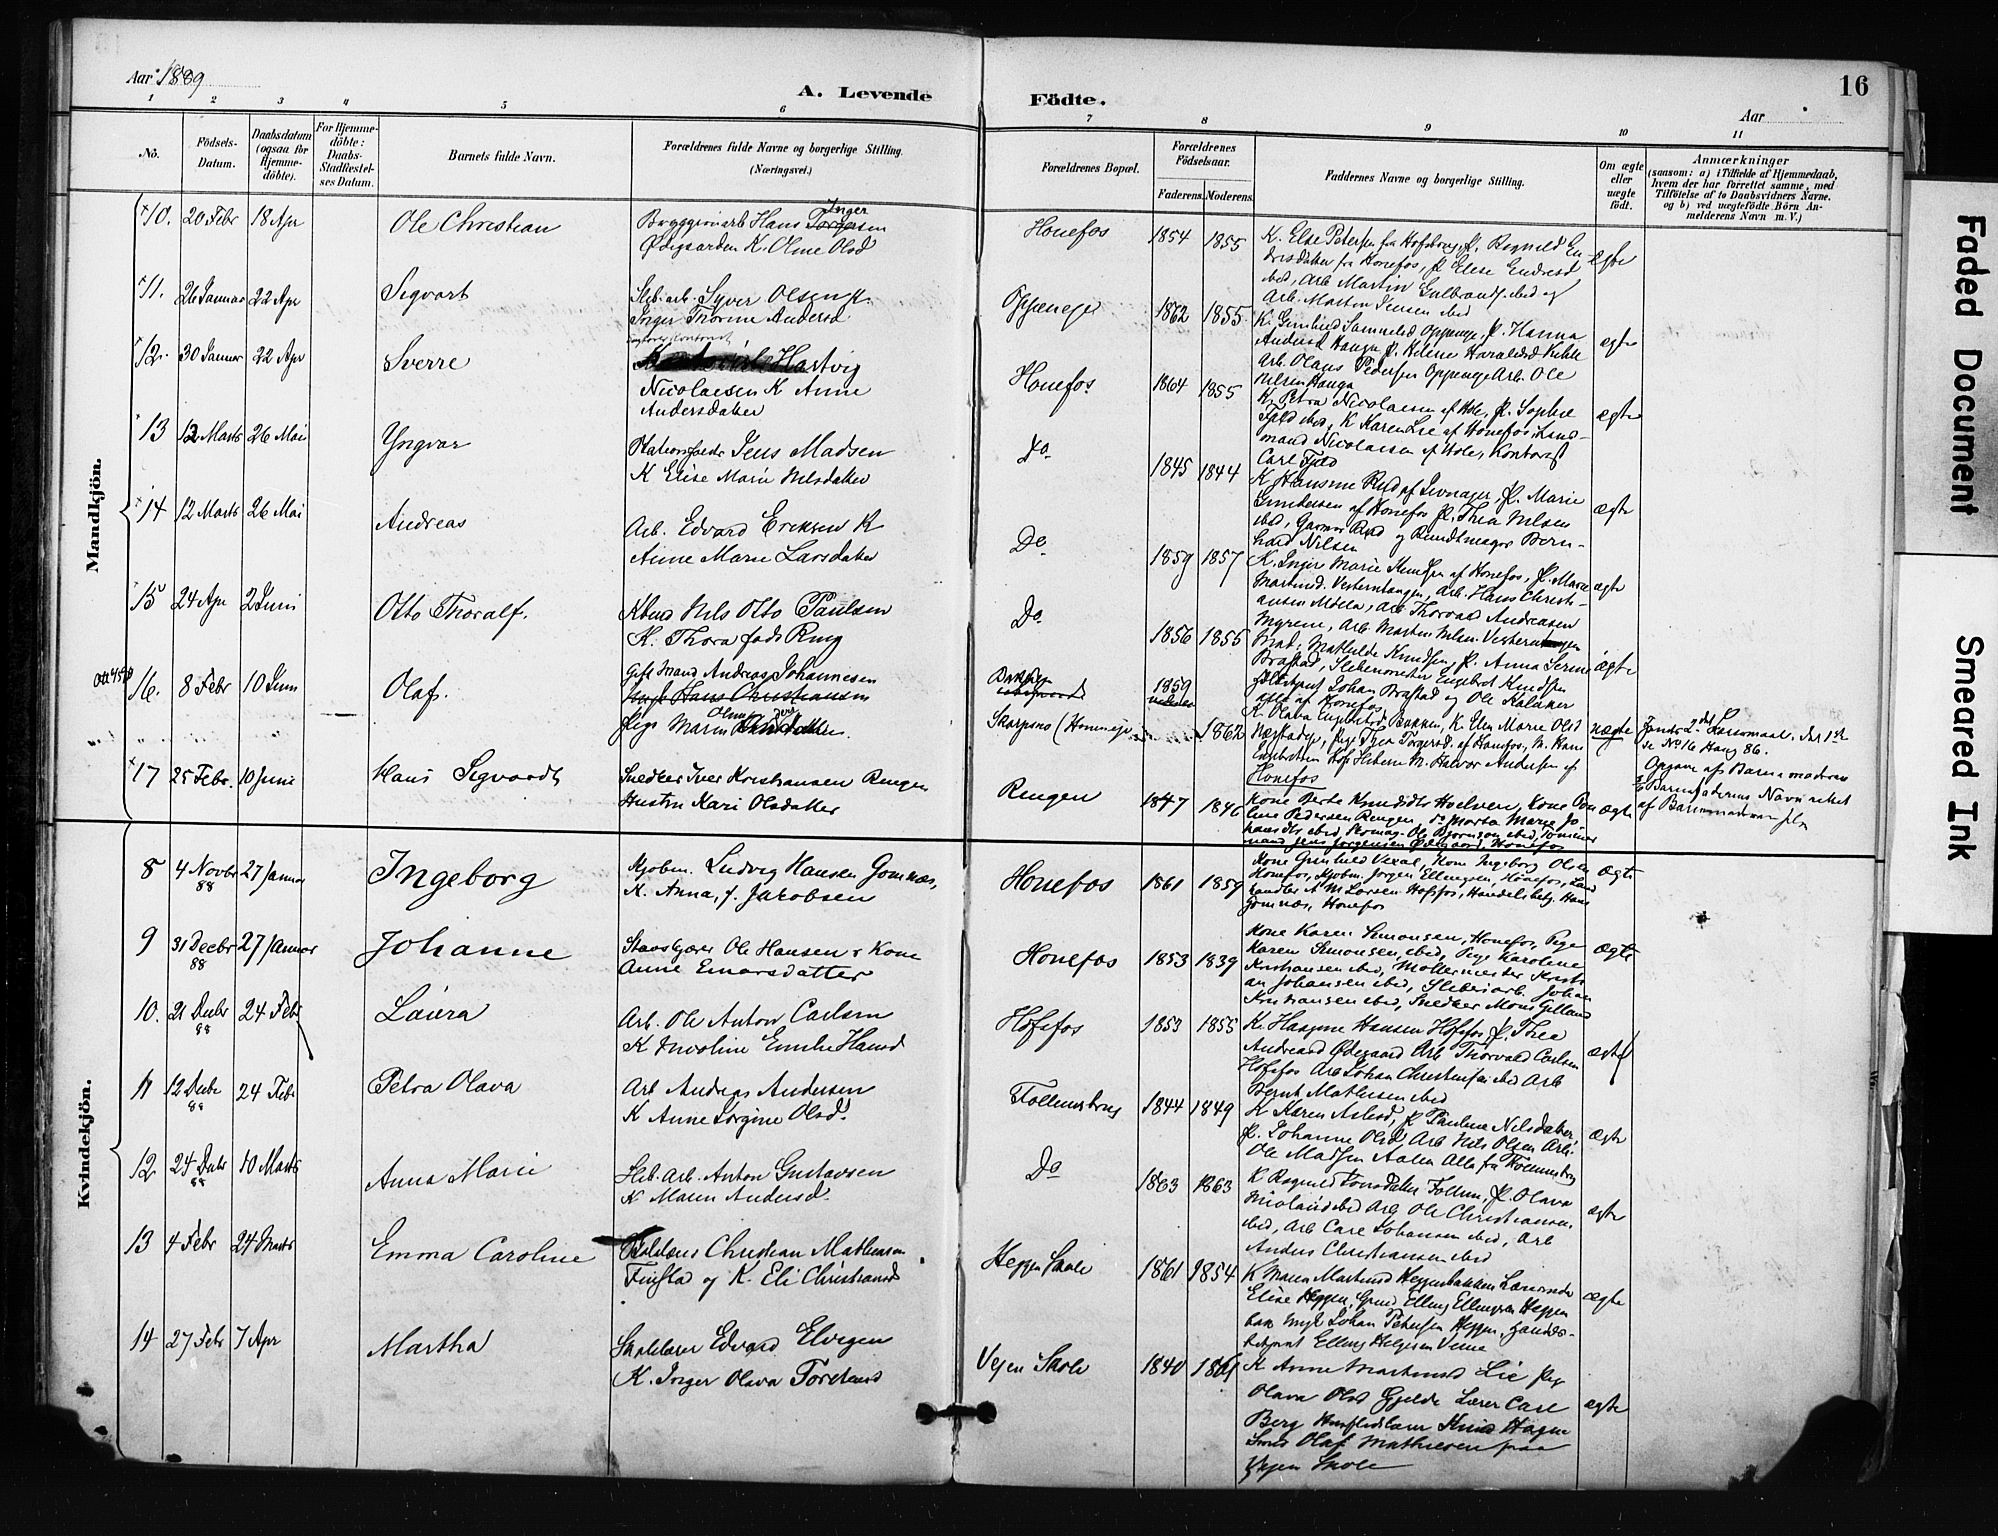 Aar 1889
A. Levende
Födte.
Aar
16
1 2 3 4 5 6 7 8 9 10 11
No.
Födsels-Datum.
Daabsdatum (ogsaa for Hjemme-döbte).
For Hjemme-döbte: Daabs-Stadfæstel-ses Datum.
Barnets fulde Navn.
Forældrenes fulde Navne og borgerlige Stilling. (Næringsvei.)
Forældrenes Bopæl.
Forældrenes Födselsaar.
Faderens. Moderens.
Faddernes Navne og borgerlige Stilling.
Om ægte eller uægte födt.
Anmærkninger
(saasom: a) i Tilfælde af Hjemmedaab, hvem der har forrettet samme, med Tilföielse af to Daabsvidners Navne. og b) ved uægtefödte Börn An-melderens Navn m. V.)
Mandkjön.
10. 20 Febr 18 Apr Ole Christian
Hans Inger Torgersen
Ødegaarden K. Oline Olsd
Honefos 1854 1855
K. Else Petersen fra Hofsbrug, P. Ragnild En
drisdatter fra Honefos, P. Elise Endresd
ibid, Arb Martin Gulbrands. ibid og
Arb. Morten Jensen ibid
ægte
11. 26 Januar 22 Apr Sigvart
Slib. arb. Syver Olsen K.
Inger Thorine Andersd
Oppeneje 1862 1855
K. Gunhild Samuelsd Oppeneje, P. Hanna
Andersd Hauga P. Helene Haraldsd
Arb Olaus Pedersen Oppeneje Arb. Ole
Nilsen Hauga
ægte
12. 30 Januar 22 Apr Sverre
Hastvig
Nicolaisen K Anne
Andersdatter
Honefos 1864 1855
K. Petra Nicolaisen af Hole, P. Sophie
Fjeld ibid, K Karen Lie af Honefos, Land-
mand Nicolaisen af Hole, Kontorist
Carl Fjeld
ægte
13 12 Marts 26 Mai Yngvar
Jens Madsen
K Elise Marie Nilsdatter
Do 1845 1844
K Hansine Rud af Jevnager, P. Marie
Gundersen af Honefos P. Thea Nilsen
ibid, Garver Rud og Bundtmager Bern-
hard Nilsen
ægte
14 12 Marts 26 Mai Andreas
Arb. Edvard Eriksen K
Anne Marie Larsdatter
Do 1859 1857
K. Inger Marie Knudsen af Honefos, P. Marie
Martinsd. Vesterntangen, Arb. Hans Christi-
ansen Moen, Arb Thorvald Andreasen
Myrene, Arb Morten Nilsen Vesterntangen
ægte
15 24 Apr 2 Juni Otto Thoralf.
Nils Otto Paulsen
K. Thora født Ring
Do 1856 1855
Mad. Mathilde Knudsen, P. Anna Serine
Brastad, Slibemester Engebret Knudsen
Johan Brastad og Ole Kolaker
alle af Honefos
ægte
16. 8 Febr 10 Juni Olaf.
Gift Mand Andreas Johannesen
Hans Christiansen
Pige Maren Oline
Skarpsno (Hommeje) 1859
1862
K. Olava Engebretsd Bakken, K. Elen Marie Olsd
Næstadeje, Pige Thea Torgersd. af Honefos, M. Hans
Engebretsen Hofs Slibem M. Halvor Andersen af
Honefos
uægte
Hans 2det Leiermaal. Det 1ste
se No 16 Aarg 86.
Opgave af Barnemoderen
Barnefaderens Navn
af Barnemoderen
17 25 Febr. 10 Juni Hans Sigvardt
Snedker Iver Kristiansen Ringen
Hustru Kari Olsdatter
Ringen 1847 1846
Kone Berte Knudsdtr Hvelven, Kone Pau
line Pedersen Rengen, Do Marta Marie Jo
hansdtr ibid, Skomag. Ole Bjornson ibid, Tommer
mand Jens Jørgensen Ødegaard, Honefos
ægte
Kvindekjön.
8 4 Novbr 88 27 Januar Ingeborg
Kjobm. Ludvig Hansen Gomnæs,
K. Anna, f. Jakobsen
Honefos 1861 1859
Kone Grinhild Vexal, Kone Ingeborg Olsen
Honefos, Kjobm. Jorgen Ellingsen, Honefos, Land
handler A M Larsen Hofsfos, Handelsbetj. Hans
Gomnæs, Honefos
ægte
9 31 Decbr 88 27 Januar Johanne
Ole Hansen & Kone
Anne Einarsdatter
Honefos 1853 1839
Kone Karen Simonsen, Honefos, Pige
Karen Simonsen, ibid, Pige Karoline
Kristiansen ibid, Mollermester Kristi
an Johansen ibid, Sliberiarb. Johan
Kristiansen ibid, Snedker Mons Gilland
ægte
10. 21 Decbr 88 24 Febr Laura
Arb. Ole Anton Carlsen
K Nicoline Emilie Hansd
Hofsfos 1853 1855
K. Hansine Hansen Hofsfos, P. Thea
Andreasd Ødegaard Arb Thorvald Carlsen
Hofsfos Arb Johan Christensen ibid Arb
Bernt Mathisen ibid
ægte
11 12 Decbr 88 24 Febr Petra Olava
Arb Andreas Andersen
K Anne Jorgine Olsd.
Follumsbrug 1844 1849
K Karen Aslesd, P Pauline Nilsdatter,
P. Johanne Olsd, Arb Nils Olsen Arb.
Ole Madsen Aalen Alle fra Follumsbrug
ægte
12 24 Decbr 88 10 Marts Anna Marie
Slib. Arb. Anton Gustavsen
K Maren Andersd.
Do 1863 1863
K Ragnild Tonsdatter Follum, P. Olava
Nicolaisd ibid Arb Ole Christiansen
ibid, Arb Carl Johansen ibid, Arb
Anders Christiansen ibid
ægte
13 4 Febr 24 Marts Emma Caroline
Skolelærer Christian Mathiesen
Finsta og K. Eli Christiansd
Heggen Skole 1861 1854
K Maren Martinsd Heggenbakken Lærerinde
Elise Heggen, Grmd Elling Ellingsen Heggen
bak Ungk Johan Petersen Heggen, Handels-
betjent Elling Helgesen Veme
ægte
14 27 Febr 7 Apr Martha
Skolelærer Edvard Elvigen
K. Inger Olava Torstensd
Vegen Skole 1840 1861
K Anne Martinsd Lie Pige
Olava Olsd Gjelde Lærer Carl
Berg Knud Hagen
Olaf Mathiesen paa
Vegen Skole
ægte
Faded Document
Smeared Ink